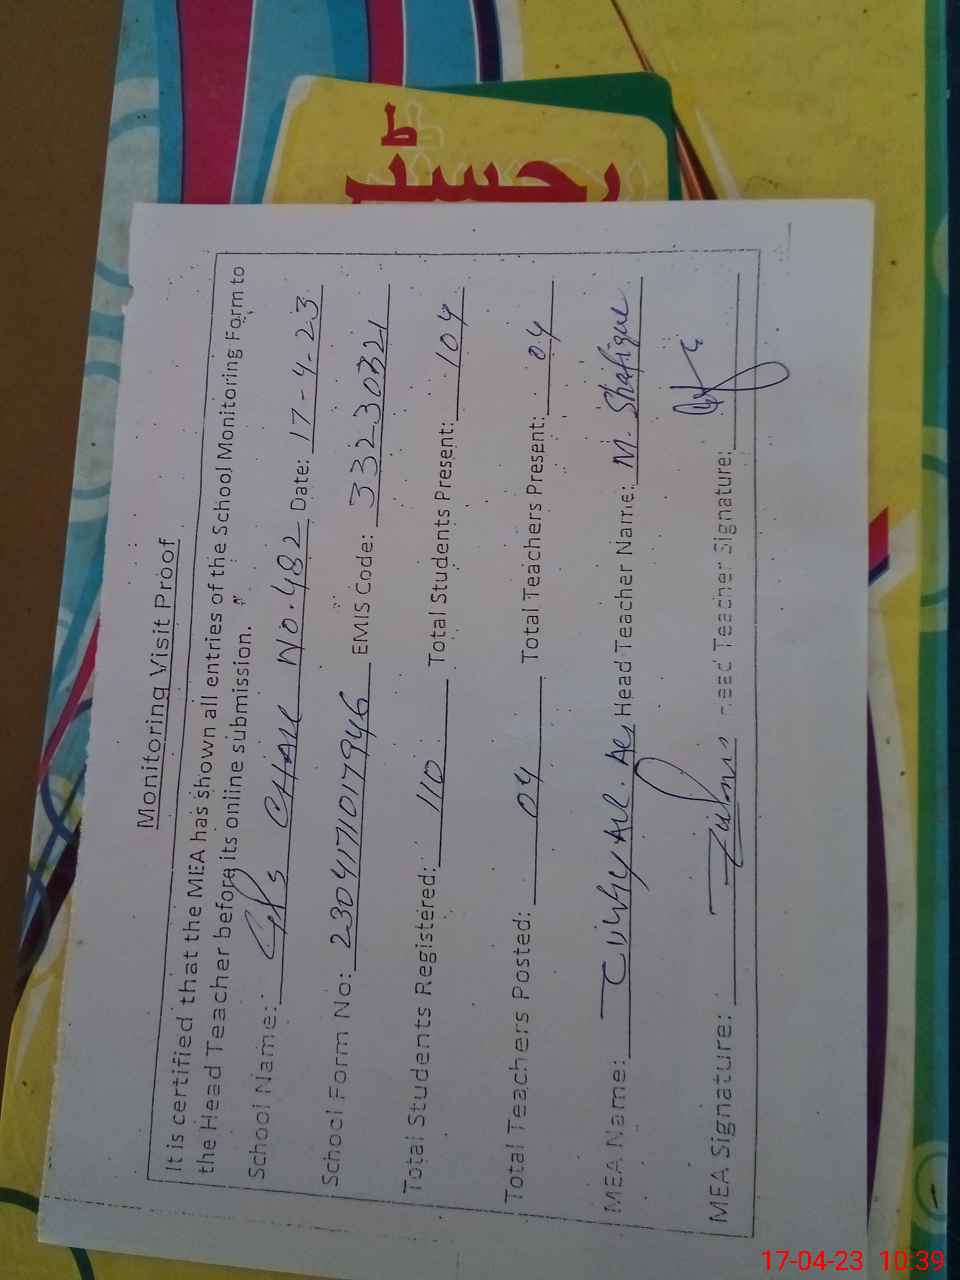 رجسٹر
Monitoring Visit Proof
It is certified that the MEA has shown all entries of the School Monitoring Form to
the Head Teacher before its online submission.
School Name: GPS CHAK NO. 482 Date: 17-4-23
School Form No: 2304171017946 EMIS Code: 33230321
Total Students Registered: 110 Total Students Present: 104
Total Teachers Posted: 04 Total Teachers Present: 04
MEA Name: Head Teacher Name: M. Shafique
MEA Signature: Head Teacher Signature:
17-04-23 10:39